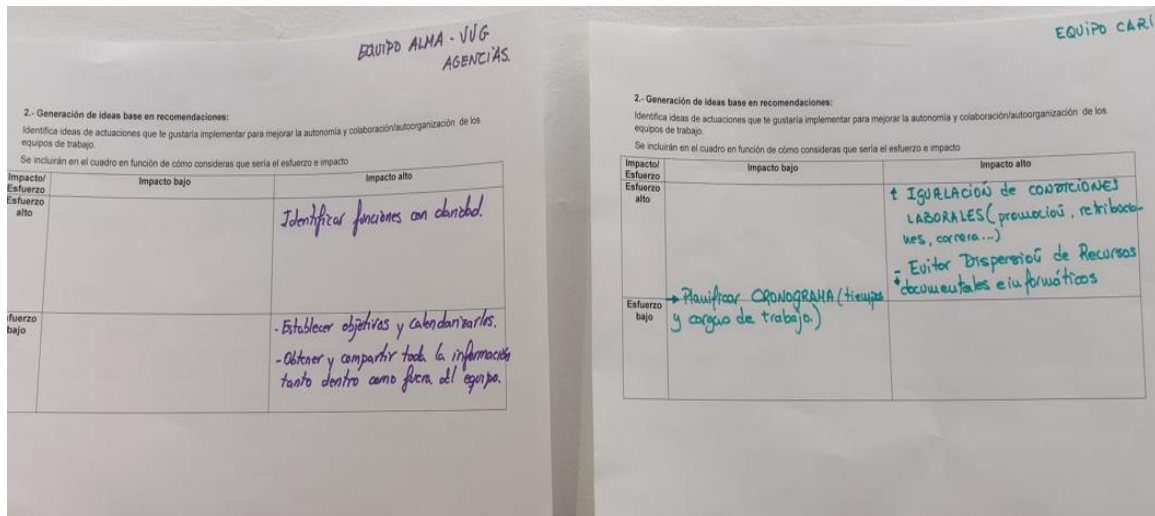 EQUIPO ALMA - VVG
AGENCIAS.
2.- Generación de ideas base en recomendaciones:
Identifica ideas de actuaciones que te gustaría implementar para mejorar la autonomía y colaboración/autoorganización de los
equipos de trabajo.
Se incluirán en el cuadro en función de cómo consideras que sería el esfuerzo e impacto
Impacto/
Esfuerzo
Impacto bajo
Impacto alto
Esfuerzo
alto
Identificar funciones con claridad.
fuerzo
bajo
- Establecer objetivos y calendarizarlos.
- Obtener y compartir toda la información
tanto dentro como fuera del equipo.
EQUIPO CARI
2.- Generación de ideas base en recomendaciones:
Identifica ideas de actuaciones que te gustaría implementar para mejorar la autonomía y colaboración/autoorganización de los
equipos de trabajo.
Se incluirán en el cuadro en función de cómo consideras que sería el esfuerzo e impacto
Impacto/
Esfuerzo
Impacto bajo
Impacto alto
Esfuerzo
alto
↑ IGUALACIÓN de CONDICIONES
LABORALES (promoción, retribucio-
nes, carrera...)
- Evitar Dispersión de Recursos
documentales e informáticos
Esfuerzo
bajo
→ Planificar CRONOGRAMA (tiempos
y cargas de trabajo.)